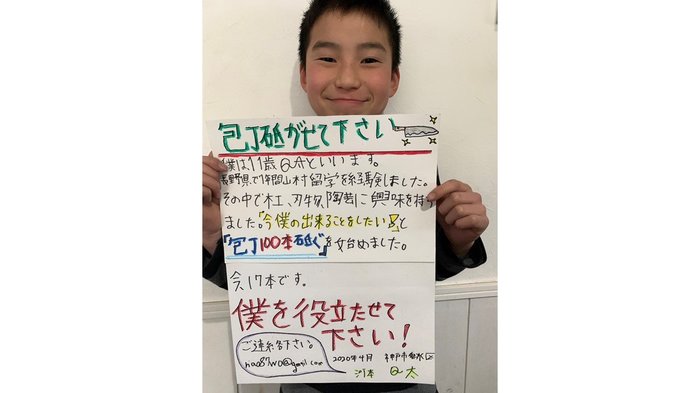 包丁砥がせて下さい
僕は11歳Q太といいます。
長野県で1年間山村留学を経験しました。
その中で木工、刃物、陶芸に興味を持ち
ました。「今僕の出来ることをしたい」と
『包丁100本砥ぐ』を始めました。
今、17本です。
僕を役立たせて
下さい!
ご連絡下さい。
@gmail.com
2020年4月 神戸市垂水区
河本 Q太